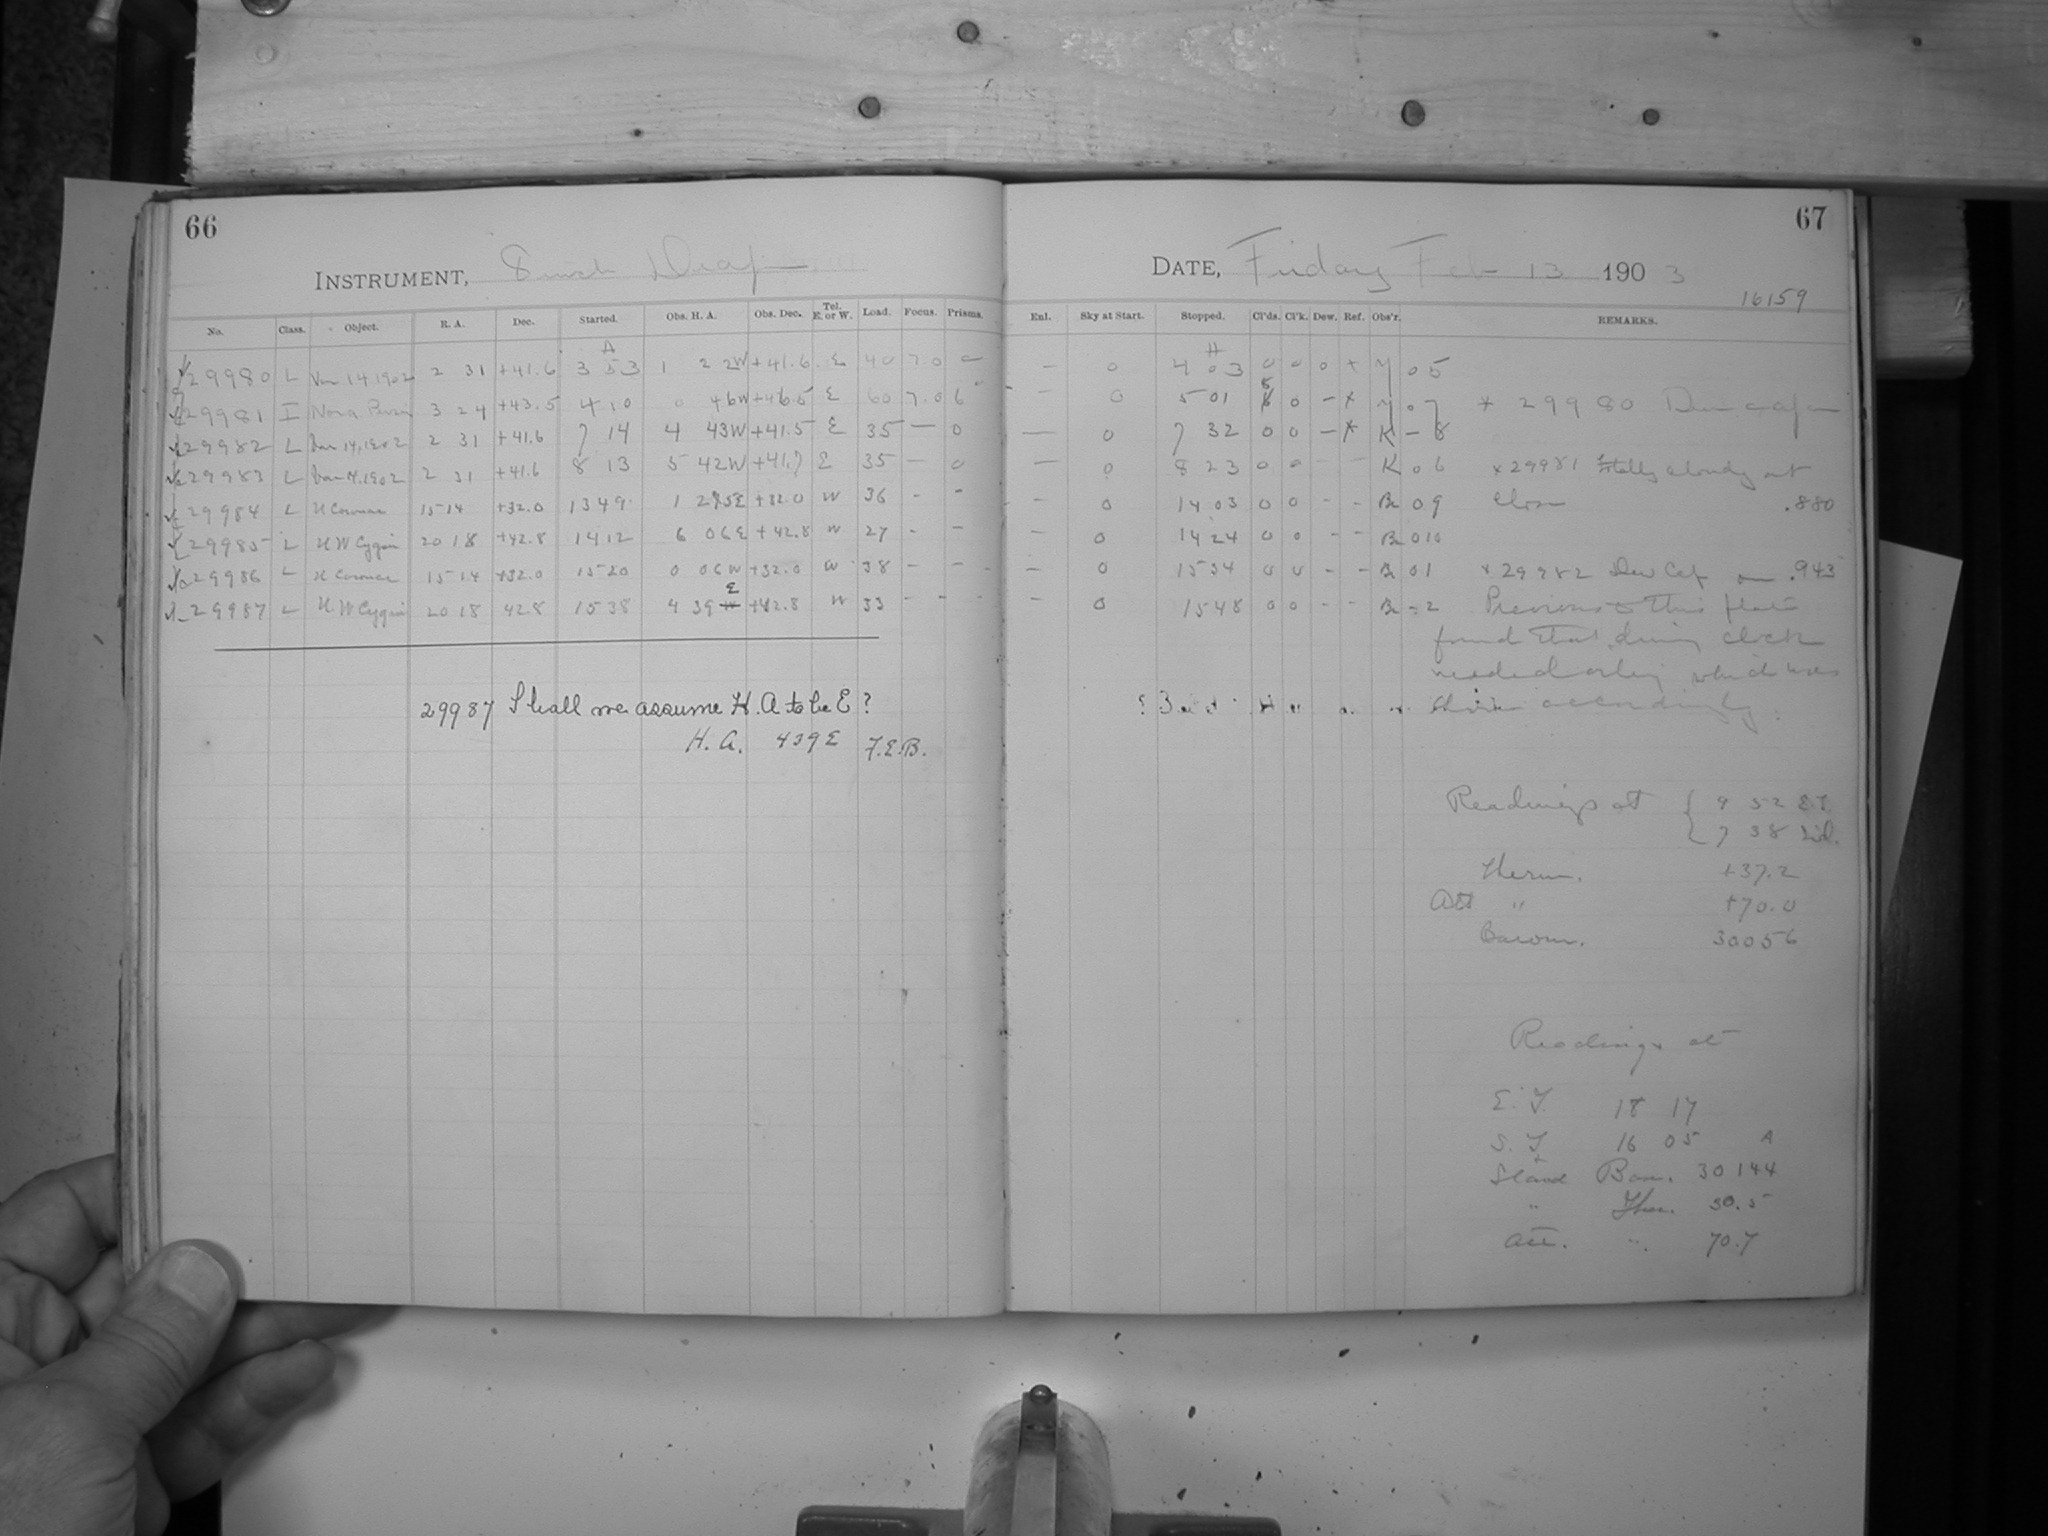 66
INSTRUMENT, 8 inch Draper
No. Class. Object. R. A. Dec. Started. Obs. H. A. Obs. Dec. Tel. E. or W. Load. Focus. Prisms.
29980 L Var 14 1902 2 31 +41.6 3 53 1 22W +41.6 E 40 7.0 —
29981 I Nova Persei 3 24 +43.5 4 10 0 46W E 60 7.0 6"
29982 L Var 14, 1902 2 31 +41.6 7 14 4 43W +41.5 E 35 — 0
29983 L Var 14. 1902 2 31 +41.6 8 13 5 42W +41.7 E 35 — 0
29984 L U Coronae 15 14 +32.0 13 49 1 E +32.0 W 36 - -
29985 L Cygni 20 18 +42.8 14 12 6 06 E +42.8 W 27 - -
29986 L U Coronae 15 14 +32.0 15 20 0 06 W +32.0 W 38 - -
29987 L Cygni 20 18 42.8 15 38 4 39 E W +42.8 W 33 - -
29987 Shall we assume H. A to be E ?
H. A. 4 39 E F.E.B.
67
DATE, Friday Feb 13 1903
16159
Enl. Sky at Start. Stopped. Cl'ds. Cl'k. Dew. Ref. Obs'r. REMARKS.
— 0 4 03 0 0 0 + M 05
— 0 5 01 0 - + M 07 * 29980 Dew cap on
— 0 7 32 0 0 - + K - 8
— 0 8 23 0 0 - - K 06 * 29981 totally cloudy at
- 0 14 03 0 0 - - 09 close .880
— 0 14 24 0 0 - - 010
— 0 15 34 0 0 - - 01 * 29982 Dew Cap on .943
— 0 15 48 0 0 - - - 2 Previous to this plate
found that driving clock
needed oiling which was
accordingly.
Readings at { 9 52 E.T.
7 38 Sid.
Therm. +37.2
Att " +70.0
Barom. 30056
Readings at
E. T. 18 17
S. T. 16 05
Stand Bar. 30144
" Ther. 30.5
Att. " 70.7